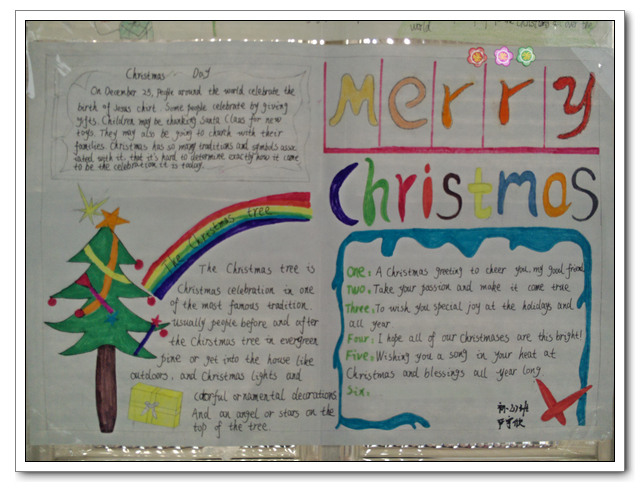 world
Christmas Day
On December 25, people around the world celebrate the
birth of Jesus chirt. Some people celebrate by giving
gifts. Children may be thanking Santa Claus for new
toys. They may also be going to church with their
families. Christmas has so many traditions and symbols assoc
iated with it, that it's hard to determine exactly how it came
to be the celebration it is today.
Merry
Christmas
The Christmas tree
The Christmas tree is
Christmas celebration in one
of the most famous tradition..
usually people before and after
the Christmas tree in evergreen
pine or get into the house like
outdoors, and Christmas lights and
colorful ornamental decorations.
And an angel or stars on the
top of the tree.
One: A Christmas greeting to cheer you, my good friend
Two: Take your passion and make it come true
Three: To wish you special joy at the holidays and
all year
Four: I hope all of our Christmases are this bright!
Five: Wishing you a song in your heat at
Christmas and blessings all year long
Six: